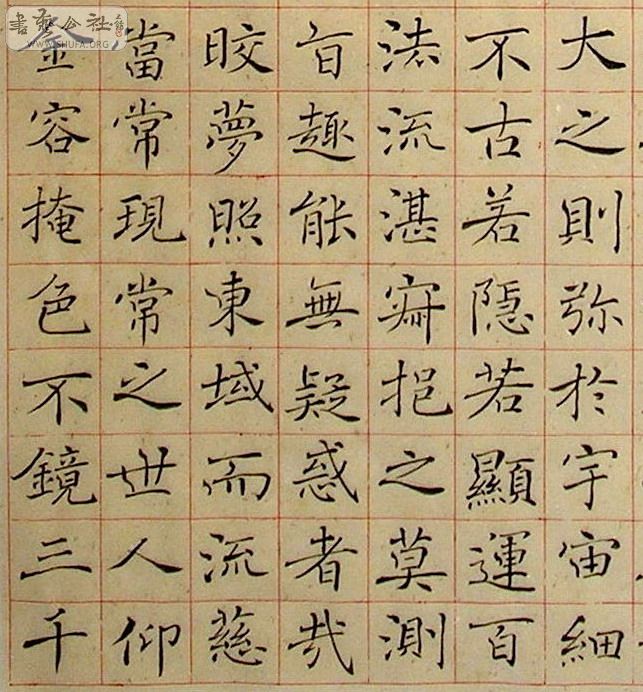 大之則弥於宇宙細
不古若隱若顯運百
法流湛寂挹之莫測
旨趣能無疑惑者哉
晈夢照東域而流慈
當常現常之世人仰
金容掩色不鏡三千
書藝公社
WWW.SHUFA.ORG